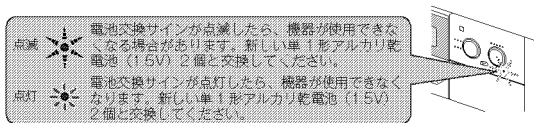 点滅
電池交換サインが点滅したら、機器が使用できな
くなる場合があります。新しい単1形アルカリ乾
電池（1.5V）2個と交換してください。
点灯
電池交換サインが点灯したら、機器が使用できなく
なります。新しい単1形アルカリ乾電池（1.5V）
2個と交換してください。